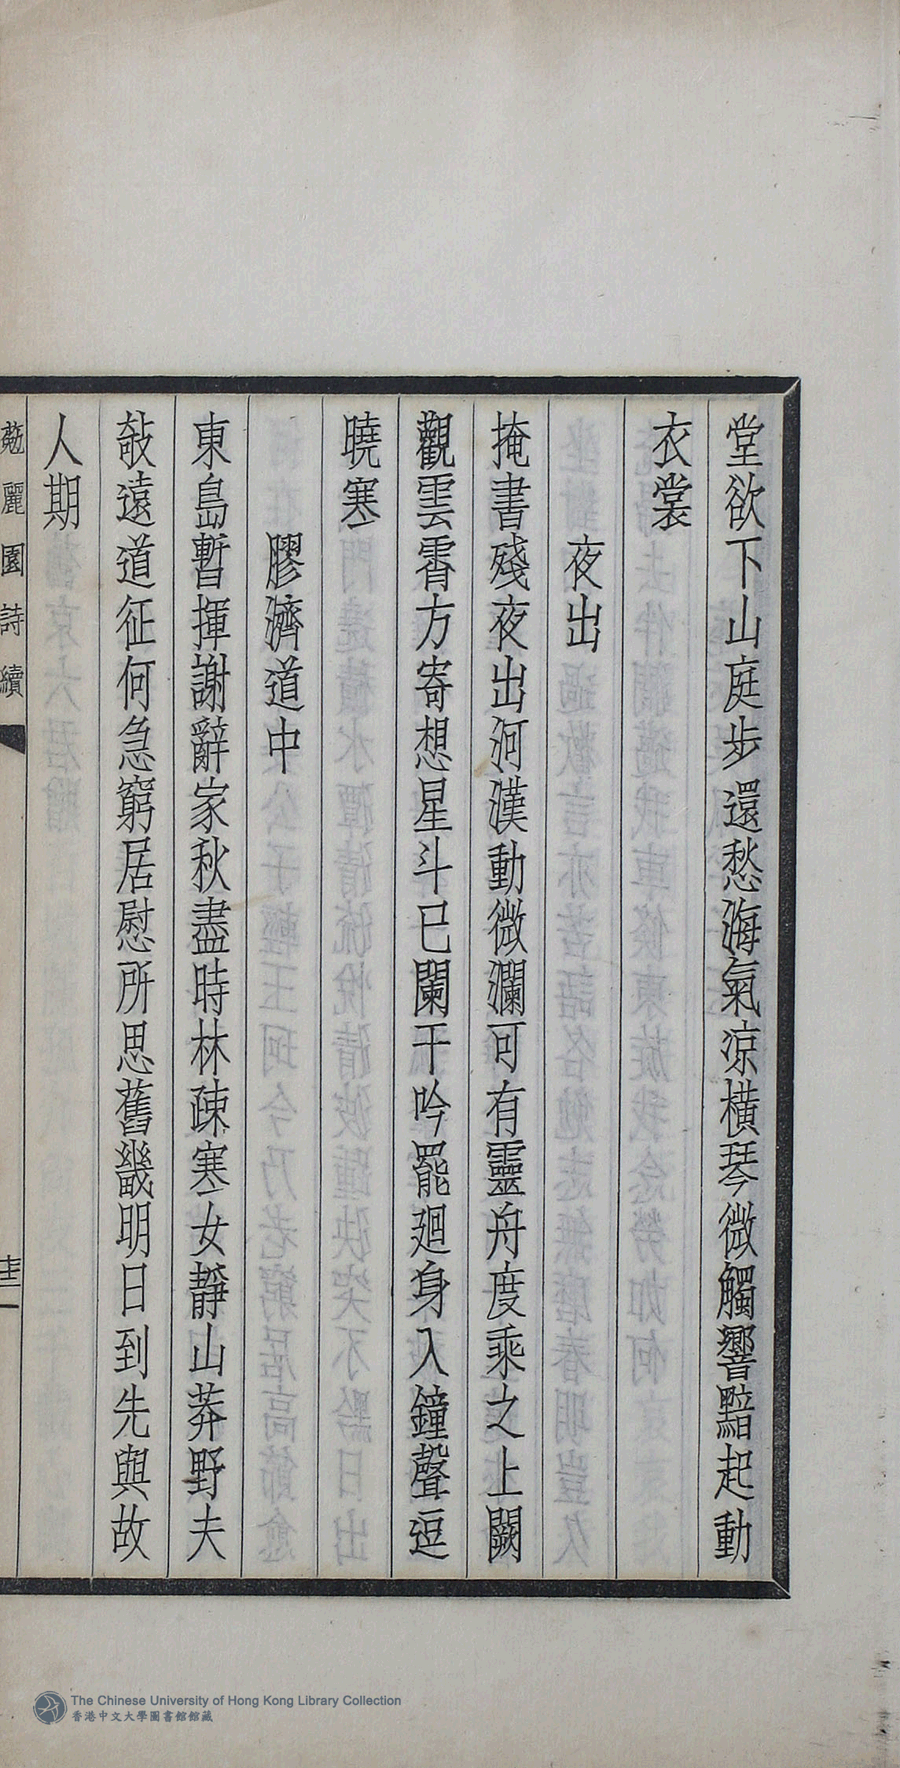 堂欲下山庭步還愁海氣涼橫琴微觸響黯起動
衣裳
夜出
掩書殘夜出河漢動微瀾可有靈舟度乘之上闕
觀雲霄方寄想星斗已闌干吟罷廻身入鐘聲逗
曉寒
膠濟道中
東島暫揮謝辭家秋盡時林疎寒女靜山莽野夫
敧遠道征何急窮居慰所思舊畿明日到先與故
人期
麗園詩續
The Chinese University of Hong Kong Library Collection
香港中文大學圖書館館藏